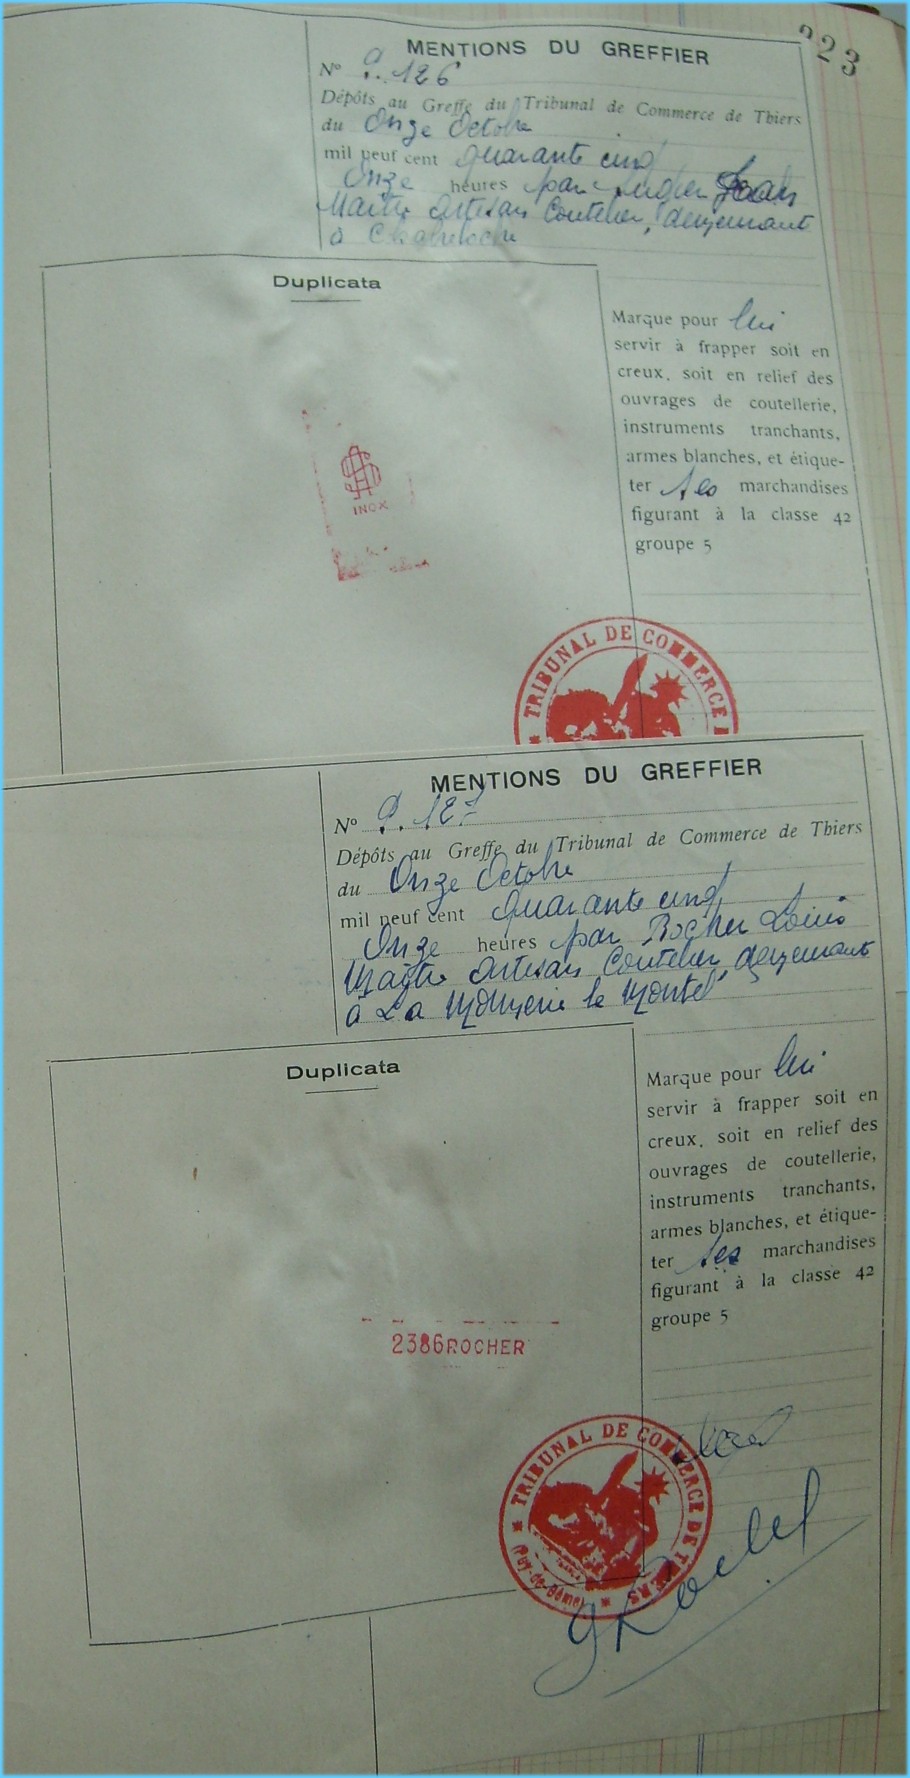 223
MENTIONS DU GREFFIER
Nº P. 126
Dépôts au Greffe du Tribunal de Commerce de Thiers
du Onze Octobre
mil neuf cent quarante cinq
Onze heures par Jean
Maître Artisan Coutelier, demeurant
à Chabreloche
Duplicata
Marque pour lui
servir à frapper soit en
creux, soit en relief des
ouvrages de coutellerie,
instruments tranchants,
armes blanches, et étique-
ter ses marchandises
figurant à la classe 42
groupe 5
INOX
TRIBUNAL DE COMMERCE
MENTIONS DU GREFFIER
Nº P. 127
Dépôts au Greffe du Tribunal de Commerce de Thiers
du Onze Octobre
mil neuf cent quarante cinq
Onze heures par Rocher Louis
Maître Artisan Coutelier, demeurant
à La Monnerie le Montel
Duplicata
Marque pour lui
servir à frapper soit en
creux, soit en relief des
ouvrages de coutellerie,
instruments tranchants,
armes blanches, et étique-
ter ses marchandises
figurant à la classe 42
groupe 5
2386ROCHER
TRIBUNAL DE COMMERCE DE THIERS
(Puy-de-Dôme)